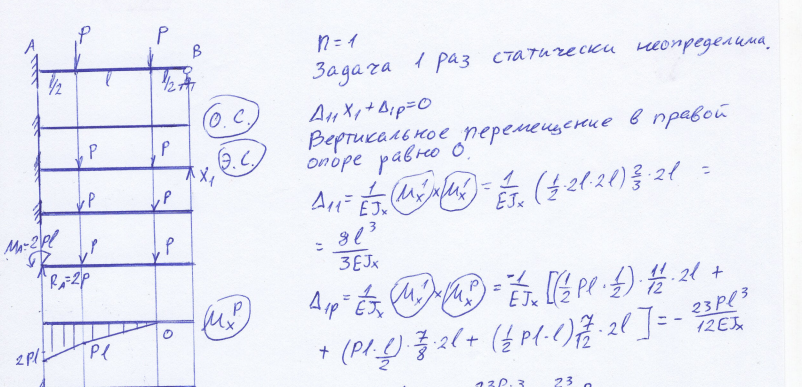 A
P
P
B
l/2
l
l/2
О.С.
P
P
Э.С.
X₁
P
P
M_A=2Pl
P
P
R_A=2P
M_x^P
2Pl
Pl
0
n=1
Задача 1 раз статически неопределима.
Δ₁₁X₁+Δ₁р=0
Вертикальное перемещение в правой
опоре равно 0.
Δ₁₁ = 1/EJx (Mx¹)×(Mx¹) = 1/EJx (1/2·2l·2l) 2/3·2l =
= 8l³/3EJx
Δ₁р = 1/EJx (Mx¹)×(Mx^P) = -1/EJx [(1/2 Pl·1/2)·11/12·2l +
+ (Pl·l/2)·7/8·2l + (1/2 Pl·l) 7/12·2l] = - 23Pl³/12EJx